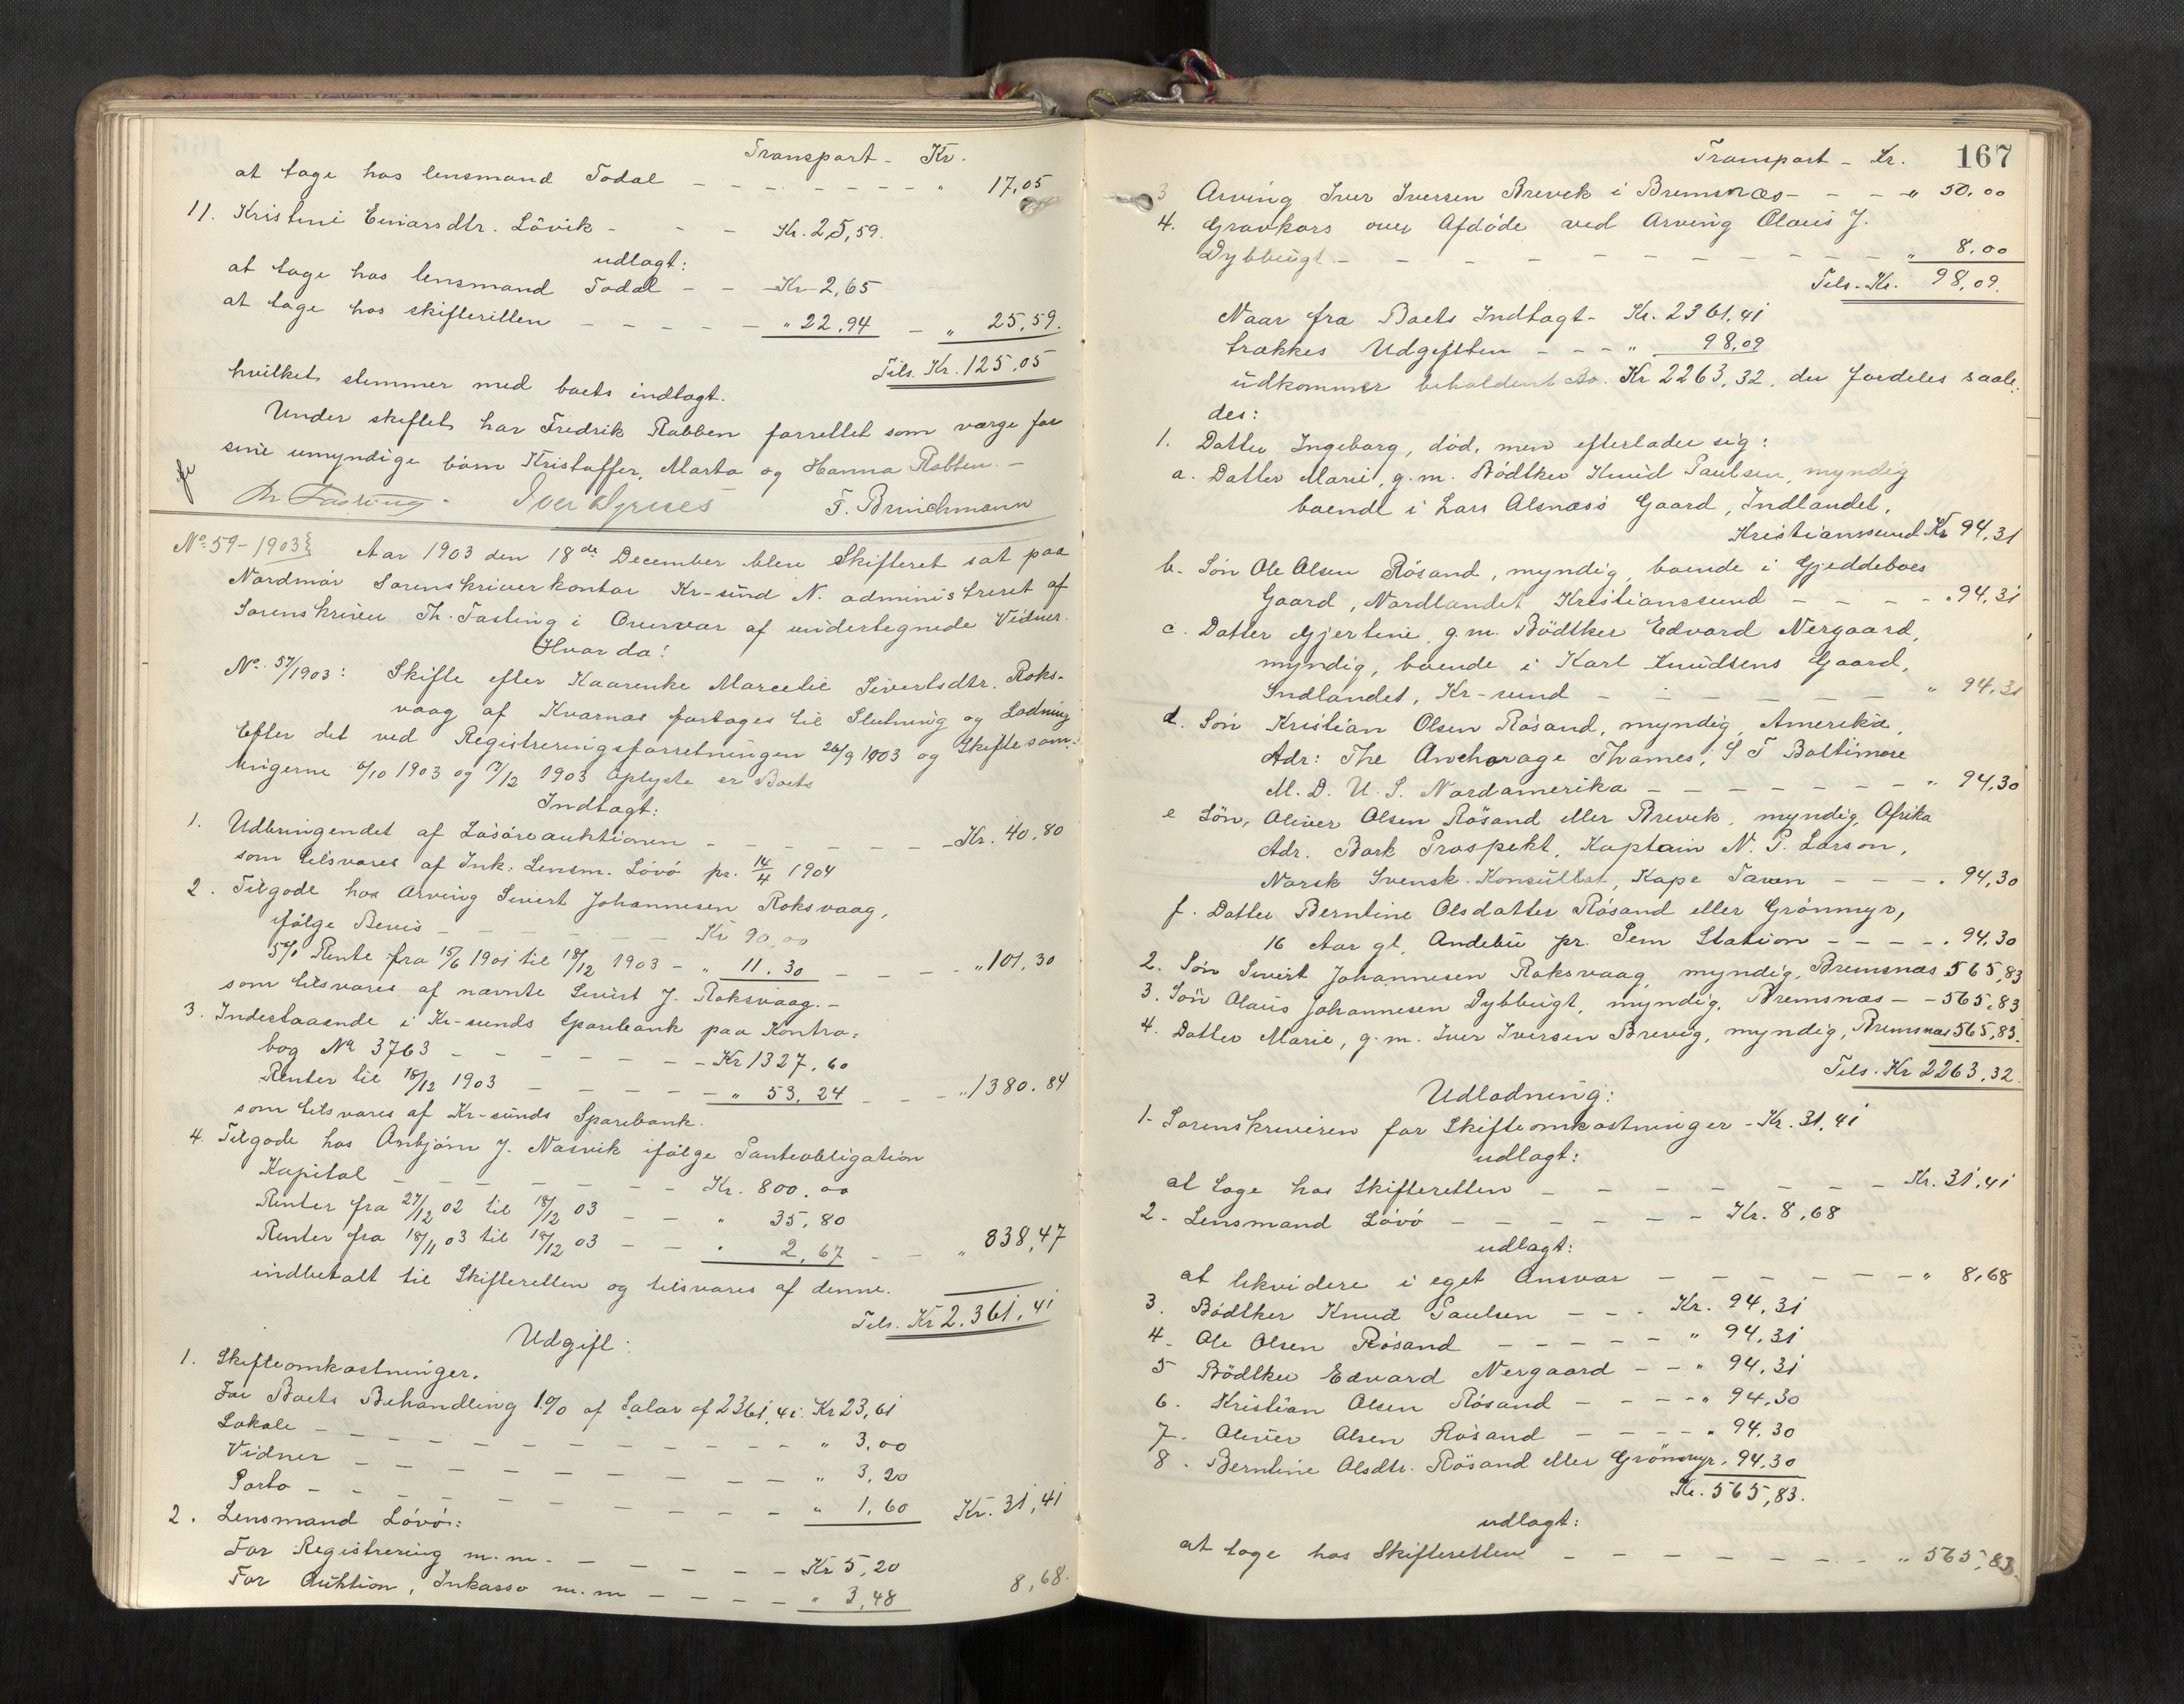 Transport - Kr.
at tage hos lensmand Todal - - - - - - - " 17,05
11. Kristine Einarsdtr. Lövik - - - Kr. 25,59.
udlagt:
at tage hos lensmand Todal - - Kr 2,65
at tage hos skifteretten - - - - - " 22,94 - " 25,59.
Tils. Kr. 125,05
hvilket stemmer med boets indtægt.
Under skiftet har Fredrik Rabben forrettet som værge for
sine umyndige börn Kristoffer, Marta og Hanna Rabben. -
Th Fasting. Iver Dyrnes F. Brinchmann
No 59-1903} Aar 1903 den 18de December blev Skifteret sat paa
Nordmör Sorenskriverkontor Kr-sund N. administreret af
Sorenskriver Th. Fasting i Overvær af undertegnede Vidner.
Hvor da:
No. 57/1903: Skifte efter Kaarenke Marcelie Sivertsdtr. Roks-
vaag af Kvarnæs foretages til Slutning og Lodning
Efter det ved Registreringsforretningen 26/9 1903 og Skiftesam:
lingerne 6/10 1903 og 7/12 1903 oplyste er Boets
Indtægt:
1. Udbringendet af Lösöreauktionen - - - - - - Kr. 40,80
som tilsvares af Ink: Lensm. Lövö pr. 14/4 1904
2. Tilgode hos Arving Sivert Johannesen Roksvaag,
ifölge Bevis - - - - - - Kr 90,00
5% Rente fra 15/6 1901 til 18/12 1903 - " 11.30 - - - - " 101,30
som tilsvares af nævnte Sivert J. Roksvaag. -
3. Indestaaende i Kr-sunds Sparebank paa Kontra-
bog No 3763 - - - - - - - Kr 1327,60
Renter til 18/12 1903 - - - - - " 53,24 - - - " 1380.84
som tilsvares af Kr-sunds Sparebank.
4. Tilgode hos Anbjörn J. Næsvik ifölge Panteobligation
Kapital - - - - - - - Kr. 800.00
Renter fra 27/12 02 til 18/12 03 - - " 35,80
Renter fra 18/11 03 til 18/12 03 - - " 2,67 - - " 838,47
indbetalt til Skifteretten og tilsvares af denne.
Tils. Kr 2.361,41
Udgift:
1. Skifteomkostninger.
For Boets Behandling 1% af Salar af 2361,41. Kr 23,61
Lokale - - - - - - - - - - - " 3,00
Vidner - - - - - - - - - - " 3,20
Porto - - - - - - - - - - - " 1,60 Kr. 31,41
2. Lensmand Lövö:
For Registrering m.m. - - - - - Kr 5,20
For Auktion, Inkasso m.m - - - - " 3,48 8,68.
Transport - Kr. 167
3 Arving Iver Iversen Brevek i Bremsnæs - - - " 50,00
4. Gravkors over Afdöde ved Arving Olaus J.
Dybbugt - - - - - - - - - - - " 8.00
Tils. Kr. 98,09.
Naar fra Boets Indtægt - Kr. 2361,41
trækkes Udgiften - - - " 98,09
udkommer beholdent Bo. Kr 2263,32, der fordeles saale-
des:
1. Datter Ingeborg, död, men efterlader sig:
a. Datter Marie, g.m. Bödtker Knud Paulsen, myndig
boende i Lars Alsnæss Gaard, Indlandet,
Kristianssund Kr 94,31
b. Sön Ole Olsen Rösand, myndig, boende i Gjeddeboes
Gaard, Nordlandet Kristianssund - - - - " 94,31
c. Datter Gjertine, g.m. Bödtker Edvard Nergaard,
myndig, boende i Karl Knudsens Gaard,
Indlandet, Kr-sund - - - - - - " 94,31
d. Sön Kristian Olsen Rösand, myndig, Amerika,
Adr: The Anchorage Thames, S T Baltimore
M. D. U. S. Nordamerika - - - - - - - " 94,30
e Sön, Oliver Olsen Rösand eller Brevek, myndig, Afrika
Adr. Bark Prospekt, Kaptain N. P. Larson,
Norsk Svensk. Konsullat, Kape Tavon - - - . 94,30
f. Datter Berntine Olsdatter Rösand eller Grönmyr,
16 Aar gl, Andebu pr. Sem Station - - - - . 94,30
2. Sön Sivert Johannesen Roksvaag myndig, Bremsnæs 565,83
3. Sön Olaus Johannesen Dybbugt, myndig, Bremsnæs - - 565,83
4. Datter Marie, g.m. Iver Iversen Brevig, myndig, Bremsnæs 565,83.
Tils. Kr 2263,32.
Udlodning:
1. Sorenskriveren for Skifteomkostninger - Kr. 31,41
udlagt:
at tage hos Skifteretten - - - - - - - - Kr. 31,41
2. Lensmand Lövö - - - - - - Kr. 8,68
udlagt:
at likvidere i eget Ansvar - - - - - - - " 8,68
3. Bödtker Knud Paulsen - - - Kr. 94,31
4. Ole Olsen Rösand - - - - - " 94,31
5 Bödtker Edvard Nergaard - - " 94,31
6. Kristian Olsen Rösand - - - - " 94,30
7. Oliver Olsen Rösand - - - - " 94,30
8. Berntine Olsdtr. Rösand eller Grönmyr. 94,30
Kr. 565,83.
udlagt:
at tage hos Skifteretten - - - - - - - - " 565,83.